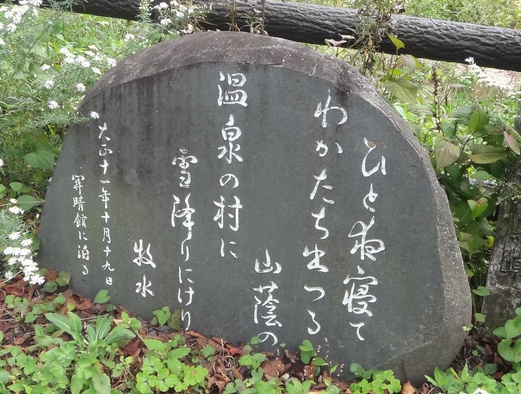 ひと夜寝て
わかたち出つる
山蔭の
温泉の村に
雪降りにけり
牧水
大正十一年十月十九日
寉晴館に泊る